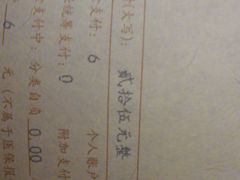 (大写): 贰拾伍元整
支付: 6 个人账户
统筹支付: 0 附加支付
支付中: 分类自负 0.00
6 元 (不属于医保报